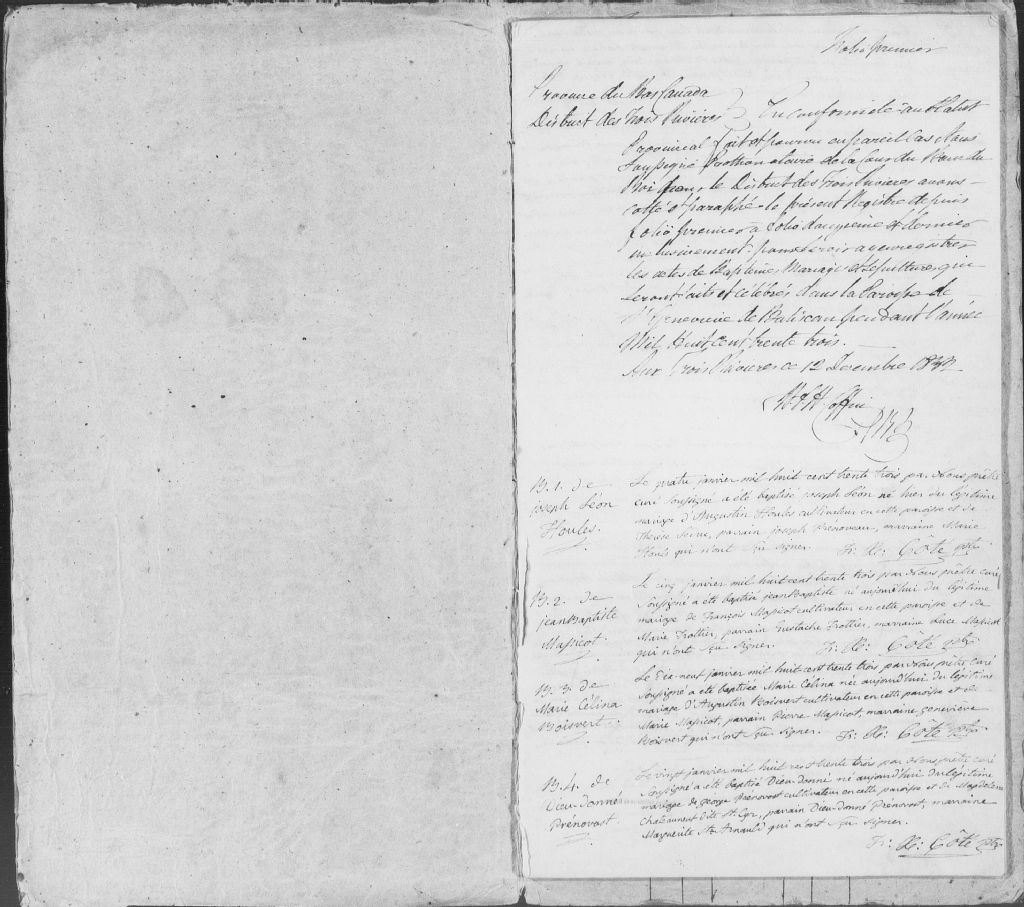 Folio premier
Province du Bas Canada
District des Trois Rivières } En conformité au Statut
Provincial fait et pourvu en pareil cas Nous
Soussigné Prothonotaire de la Cour du Banc du
Roi pour le District des Trois Rivières avons
cotté et paraphé le présent Registre depuis
folio premier a folio et dernier
inclusivement pour servir a enregistrer
les actes de Baptêmes Mariages et Sepultures qui
seront faits et célébrés dans la Paroisse de
Ste Genevieve de Batiscan pendant l'année
Mil huit cent trente trois.
Aux Trois Rivieres ce 12 Decembre 1832
Coffin
B. 1. de
Joseph Léon
Houles.
Le quatre janvier mil huit cent trente trois par Nous prêtre
curé soussigné a été baptisé joseph Léon né hier du légitime
mariage d'Augustin Houles cultivateur en cette paroisse et de
Therese, parrain joseph Prénoveau, marraine Marie
Houls qui n'ont sçu signer. Fr: X: Côté ptre
B. 2. de
jean Baptiste
Massicot.
Le cinq janvier mil huit cent trente trois par Nous prêtre curé
soussigné a été baptisé jean Baptiste né aujourd'hui du légitime
mariage de François Massicot cultivateur en cette paroisse et de
Marie Trottier, parrain Eustache Trottier, marraine Luce Massicot
qui n'ont sçu signer. Fr: X: Côté ptre
B. 3. de
Marie Célina
Boisvert.
Le dix-neuf janvier mil huit cent trente trois par Nous prêtre curé
soussigné a été baptisée Marie Célina née aujourd'hui du légitime
mariage d'Augustin Boisvert cultivateur en cette paroisse et de
Marie Massicot, parrain Pierre Massicot, marraine geneviève
Boisvert qui n'ont sçu signer. Fr: X: Côté ptre
B. 4. de
Dieu-donné
Prénovost.
Le vingt janvier mil huit cent trente trois par Nous prêtre curé
soussigné a été baptisé Dieu-donné né aujourd'hui du légitime
mariage de george Prénovost cultivateur en cette paroisse et de Magdeleine
Chateauneuf dite St. Cyr, parrain Dieu-donné Prénovost, marraine
Marguerite St. Arnauld qui n'ont sçu signer.
Fr: X: Côté ptre